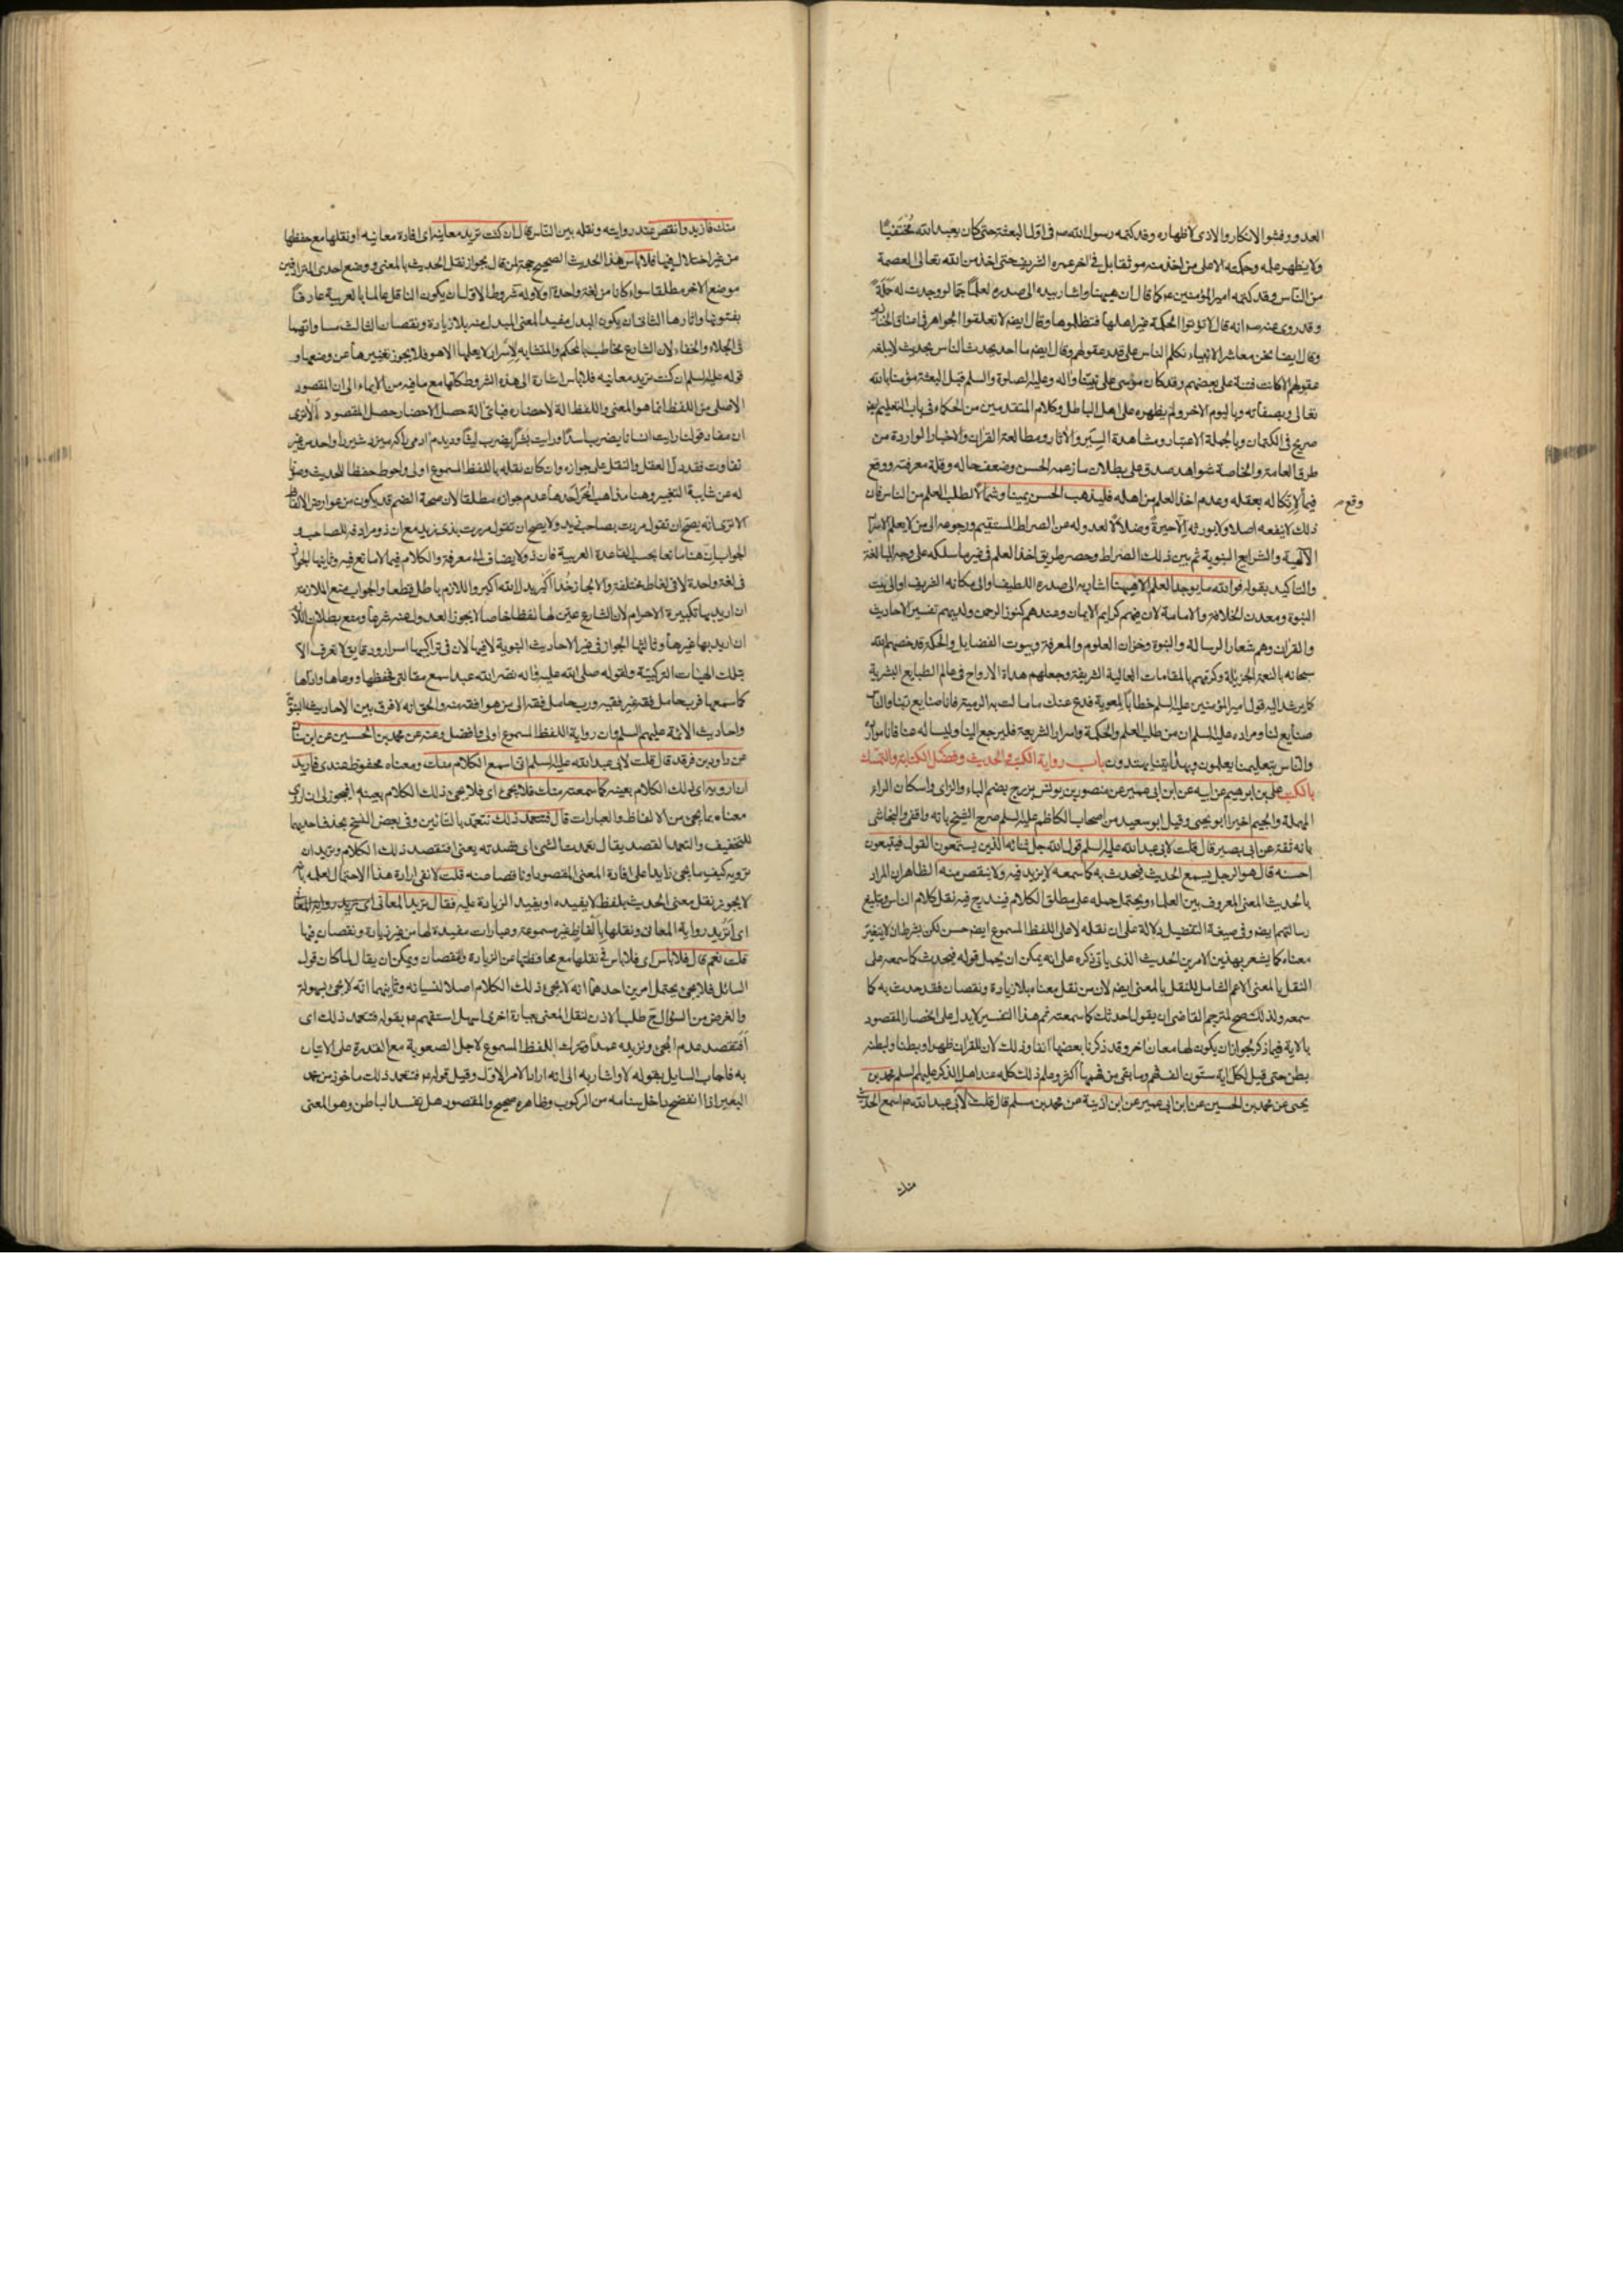 العدو ورفشوا الانكار والاذى لاظهاره وقد كتمه رسول الله صم فى اول البعثة حتى كان يعبد الله مختفيًا
ولا يظهر علمه وحكمته الا على من اخذ منه موثقا بل فى اخر عمره الشريف حتى اخذ من الله تعالى العصمة
من الناس وقد كتمه امير المؤمنين ع كما قال ان هيهنا واشار بيده الى صدره لعلمًا جمًا لو وجدت له حملة
وقد روى عنه صم انه قال لا تؤتوا الحكمة غير اهلها فتظلموها وقال ايضم لا تعلقوا الجواهر فى اعناق الخنازير
وقال ايضا نحن معاشر الانبياء نكلم الناس على قدر عقولهم وقال ايضم ما احد يحدث الناس بحديث لا يبلغه
عقولهم الا كانت فتنة على بعضهم وقد كان موسى على نبينا واله وعليه الصلوة والسلم قبل البعثة مؤمنا بالله
تعالى وبصفاته وباليوم الاخر ولم يظهره على اهل الباطل وكلام المتقدمين من الحكماء فى باب التعليم ايضم
صريح فى الكتمان وبالجملة الاعتبار ومشاهدة السير والاثار ومطالعة القران والاخبار الواردة من
طرق العامة والخاصة شواهد صدق على بطلان ما زعمه الحسن وضعف حاله وقلة معرفته ووقع
فيما لا تكاله بعقله وعدم اخذ العلم من اهله فليذهب الحسن يمينا وشمالًا لطلب العلم من الناس فان
وقع
ذلك لا ينفعه اصلا ولا يورثه الا حيرة وضلالًا لعدوله عن الصراط المستقيم ورجوعه الى من لا يعلم الاسرار
الالهية والشرايع النبوية ثم بين ذلك الصراط وحصر طريق اخذ العلم فى غير ما سلكه على وجه المبالغة
والتاكيد بقوله فوالله ما يوجد العلم الا هيهنا اشار به الى صدره اللطيف او الى مكانه الشريف او الى بيت
النبوة ومعدن الخلافة والامامة لان فيهم كرايم الايمان وعندهم كنوز الرحمن ولديهم تفسير الاحاديث
والقران وهم شعار الرسالة والنبوة وخزان العلوم والمعرفة وبيوت الفضايل والحكمة قد خصهم الله
سبحانه بالنعمة الجزيلة وكرمهم بالمقامات العالية الشريفة وجعلهم هداة الارواح فى عالم الطبايع البشرية
كما يرشد اليه قول امير المؤمنين عليه السلم خطابًا لمعوية فدع عنك ما مالت به الرمية فانا صنايع ربنا والناس
صنايع لنا ومراده عليه السلم ان من طلب العلم والحكمة واسرار الشريعة فليرجع الينا وليساله عنا فانا موارد
والناس بتعليمنا يعلمون وبهدايتنا يهتدون باب رواية الكتب والحديث وفضل الكتابة والتمسك
بالكتب على بن ابرهيم عن ابيه عن ابن ابى عمير عن منصور بن يونس بزرج بضم الباء والزاى واسكان الراء
المهملة والجيم اخيرا ابو يحيى وقيل ابو سعيد من اصحاب الكاظم عليه السلم صرح الشيخ بانه واقفى والنجاشى
بانه ثقة عن ابى بصير قال قلت لابى عبد الله عليه السلم قول الله جل ثنائه الذين يستمعون القول فيتبعون
احسنه قال هو الرجل يسمع الحديث فيحدث به كما سمعه لا يزيد فيه ولا ينقص منه الظاهر ان المراد
بالحديث المعنى المعروف بين العلماء ويحتمل حمله على مطلق الكلام فيندرج فيه نقل كلام الناس وتبليغ
رسالتهم ايضم وفى صيغة التفضيل دلالة على ان نقله لا على اللفظ المسموع ايضم حسن لكن بشرط ان لا يتغير
معناه كما يشعر بهذين الامرين الحديث الذى ياتى ذكره على انه يمكن ان يحمل قوله فيحدث كما سمعه على
النقل بالمعنى الاعم الشامل للنقل بالمعنى ايضم لان من نقل معناه بلا زيادة ونقصان فقد حدث به كما
سمعه ولذلك صح لمترجم القاضى ان يقول احدثك كما سمعته نعم هذا التفسير لا يدل على انحصار المقصود
بالاية فيما ذكر لجواز ان يكون لها معان اخر وقد ذكرنا بعضها انفا وذلك لان للقران ظهرا وبطنا ولبطنه
بطن حتى قيل لكل اية ستون الف فهم وما بقى من فهمها اكثر وعلم ذلك كله عند اهل الذكر عليهم السلم محمد بن
يحيى عن محمد بن الحسين عن ابن ابى عمير عن ابن اذينة عن محمد بن مسلم قال قلت لابى عبد الله عم اسمع الحديث
منك
منك فازيد وانقص عند روايته ونقله بين الناس قال ان كنت تريد معانيه اى افادة معانيه او نقلها مع حفظها
من غير اختلال فيها فلا باس هذا الحديث الصحيح حجة لمن قال بجواز نقل الحديث بالمعنى ووضع احدى المترادفين
موضع الاخر مطلقا سواء كانا من لغة واحدة اولا وله شروط الاول ان يكون الناقل عالما بالعربية عارفًا
بفنونها واثارها الثانى ان يكون البدل مفيد المعنى المبدل منه بلا زيادة ونقصان الثالث مساواتهما
فى الجلاء والخفاء لان الشارع يخاطب بالمحكم والمتشابه لاسرار لا يعلمها الا هو فلا يجوز تغييرها عن وضعها و
قوله عليه السلم ان كنت تريد معانيه فلا باس اشارة الى هذه الشروط كلها مع ما فيه من الايماء الى ان المقصود
الاصلى من اللفظ انما هو المعنى واللفظ الة لاحضاره فباى الة حصل الاحضار حصل المقصود الا ترى
ان مفاد قولنا رايت انسانا يضرب اسدًا ورايت بشرًا يضرب ليثًا وديدم ادمى باكه ميزد شير را واحد من غير
تفاوت فقد دل العقل والنقل على جوازه وان كان نقله باللفظ المسموع اولى واحوط حفظا للحديث وصونا
له عن شايبة التغيير وهنا مذاهب اخر احدها عدم جوازه مطلقا لان صحة الضم قد يكون من عوارض الالفاظ
الا ترى انه يصح ان تقول مررت بصاحب زيد ولا يصح ان تقول مررت بذى زيد مع ان ذو مرادفه للصاحب و
الجواب ان هنا مانعا بحسب القاعدة العربية فان ذو لا يضاف الى معرفة والكلام فيما لا مانع فيه وثانيها الجواز
فى لغة واحدة لا فى لغات مختلفة والا لجاز خدا اكبر بدل الله اكبر واللازم باطل قطعا والجواب منع الملازمة
ان اريد بها تكبيرة الاحرام لان الشارع عين لها لفظا خاصا لا يجوز العدول عنه شرعا ومنع بطلان اللازم
ان اريد بها غيرها وثالثها الجواز فى غير الاحاديث النبوية لا فيها لان فى تراكيبها اسرار ودقايق لا تعرف الا
بتلك الهيئات التركيبية ولقوله صلى الله عليه واله نضر الله عبدا سمع مقالتى فحفظها ووعاها واداها
كما سمعها فرب حامل فقه غير فقيه ورب حامل فقه الى من هو افقه منه والحق انه لا فرق بين الاحاديث النبوية
واحاديث الائمة عليهم السلم وان رواية اللفظ المسموع اولى وافضل وعنه عن محمد بن الحسين عن ابن سنان
عن داود بن فرقد قال قلت لابى عبد الله عليه السلم انى اسمع الكلام منك ومعناه محفوظ عندى فاريد
ان ارويه اى ذلك الكلام بعينه كما سمعته منك فلا يجئ اى فلا يجئ ذلك الكلام بعينه افيجوز لى ان اروى
معناه بما يجئ من الالفاظ والعبارات قال فتتعمد ذلك تتعمد بالتائين وفى بعض النسخ بحذف احديهما
للتخفيف والتعمد القصد يقال تعمدت الشئ اى قصدته يعنى افتقصد ذلك الكلام وتريد ان
ترويه كيف ما يجئ زايدا على افادة المعنى المقصود او ناقصا منه قلت لا نفى ارادة هذا الاحتمال لعلمه بانه
لا يجوز نقل معنى الحديث بلفظ لا يفيده او يفيد الزيادة عليه فقال تريد المعانى اى تريد رواية المعانى
اى اتريد رواية المعانى ونقلها بالفاظ غير مسموعة وعبارات مفيدة لها من غير زيادة ونقصان فيها
قلت نعم قال فلا باس اى فلا باس فى نقلها مع محافظتها عن الزيادة والنقصان ويمكن ان يقال لما كان قول
السائل فلا يجئ يحتمل امرين احدهما انه لا يجئ ذلك الكلام اصلا لنسيانه وثانيهما انه لا يجئ بسهولة
والغرض من السؤال ح طلب الاذن لنقل المعنى بعبارة اخرى اسهل استفهم ع بقوله فتتعمد ذلك اى
افتقصد عدم المجئ وتريده عمدا وتترك اللفظ المسموع لاجل الصعوبة مع القدرة على الاتيان
به فاجاب السايل بقوله لا واشار به الى انه اراد الامر الاول وقيل قوله ع فتتعمد ذلك ماخوذ من عمد
البعير اذا انفضخ داخل سنامه من الركوب وظاهره صحيح والمقصود هل تفسد الباطن وهو المعنى